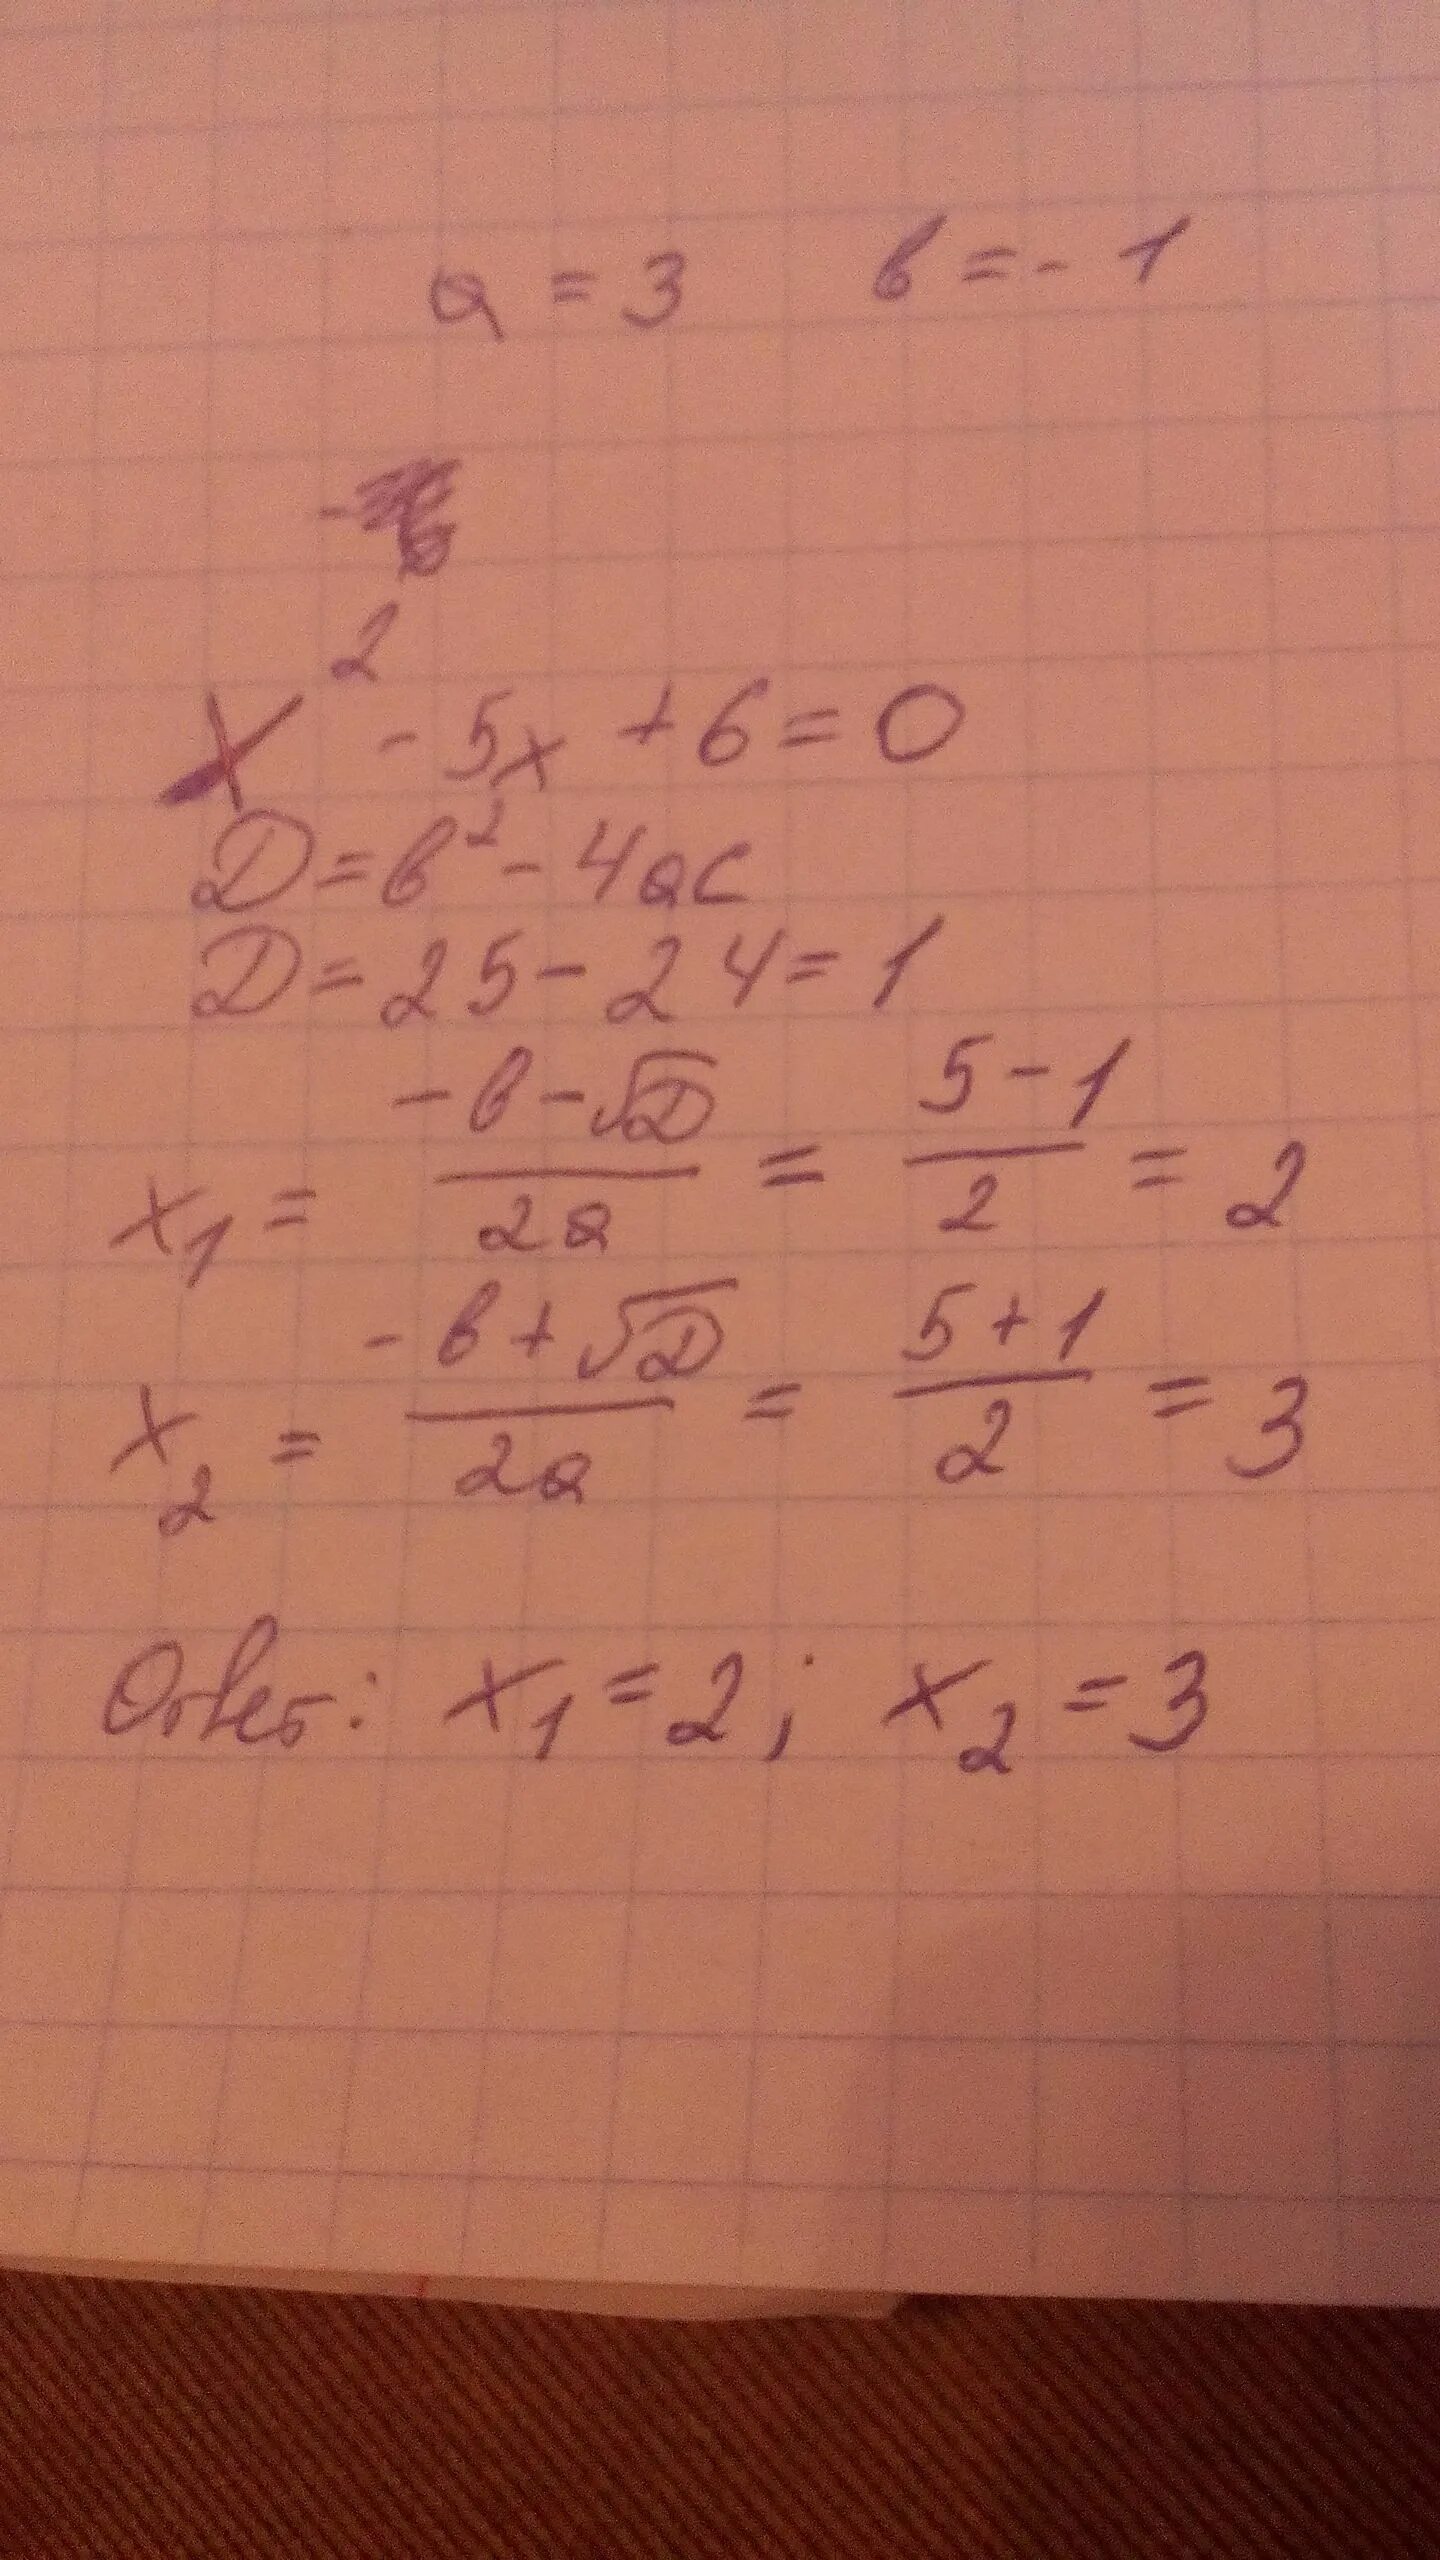 a = 3 b = - 1
x² - 5x + 6 = 0
D = b² - 4ac
D = 25 - 24 = 1
x₁ = (-b - √D)/(2a) = (5 - 1)/2 = 2
x₂ = (-b + √D)/(2a) = (5 + 1)/2 = 3
Ответ: x₁ = 2; x₂ = 3